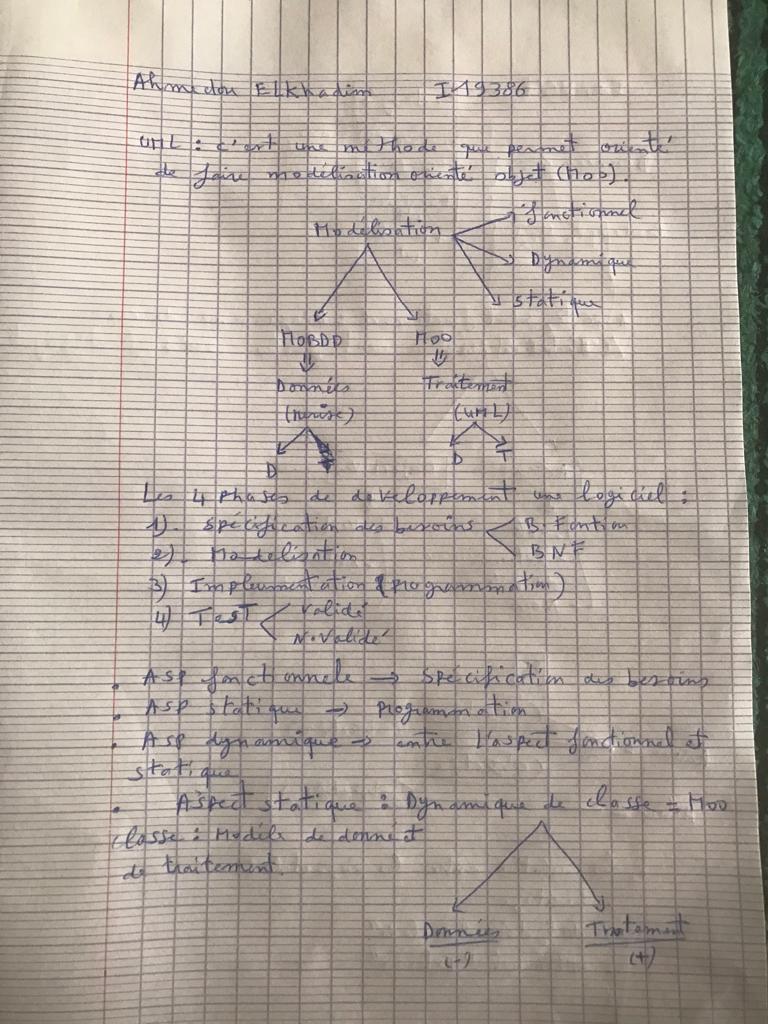 Ahmedou ELkhadim I19386
UML : c'est une méthode que permet orienté
de faire modélisation orienté objet (Moo).
Modélisation
fonctionnel
Dynamique
statique
MoBDD Moo
Données Traitement
(merise) (UML)
D D T
Les 4 phases de développement une logiciel :
1). Spécification des besoins B. Fontion
BNF
2). Modélisation
3) Implementation (programmation)
4) TesT Validé
N.Validé
. ASP fonctionnele → spécification des besoins
. ASP statique → programmation
. ASP dynamique → entre l'aspect fonctionnel et
statique
. Aspect statique : Dynamique de classe = Moo
classe : Modèle de donné et
de traitement.
Données Traitement
(-) (+)